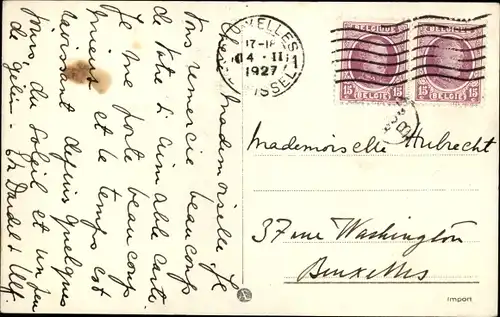 Chère Mademoiselle. Je
vous remercie beaucoup
de votre si aimable carte.
Je me porte beaucoup
mieux et le temps est
ravissant depuis quelques
jours, du soleil et un peu
de gelée.
XELLES
17-18
14 · II
1927
1
SSEL
BELGIQUE
15 BELGIE 15
15 BELGIE 15
Mademoiselle Hubrecht
37 rue Washington
Bruxelles
Import